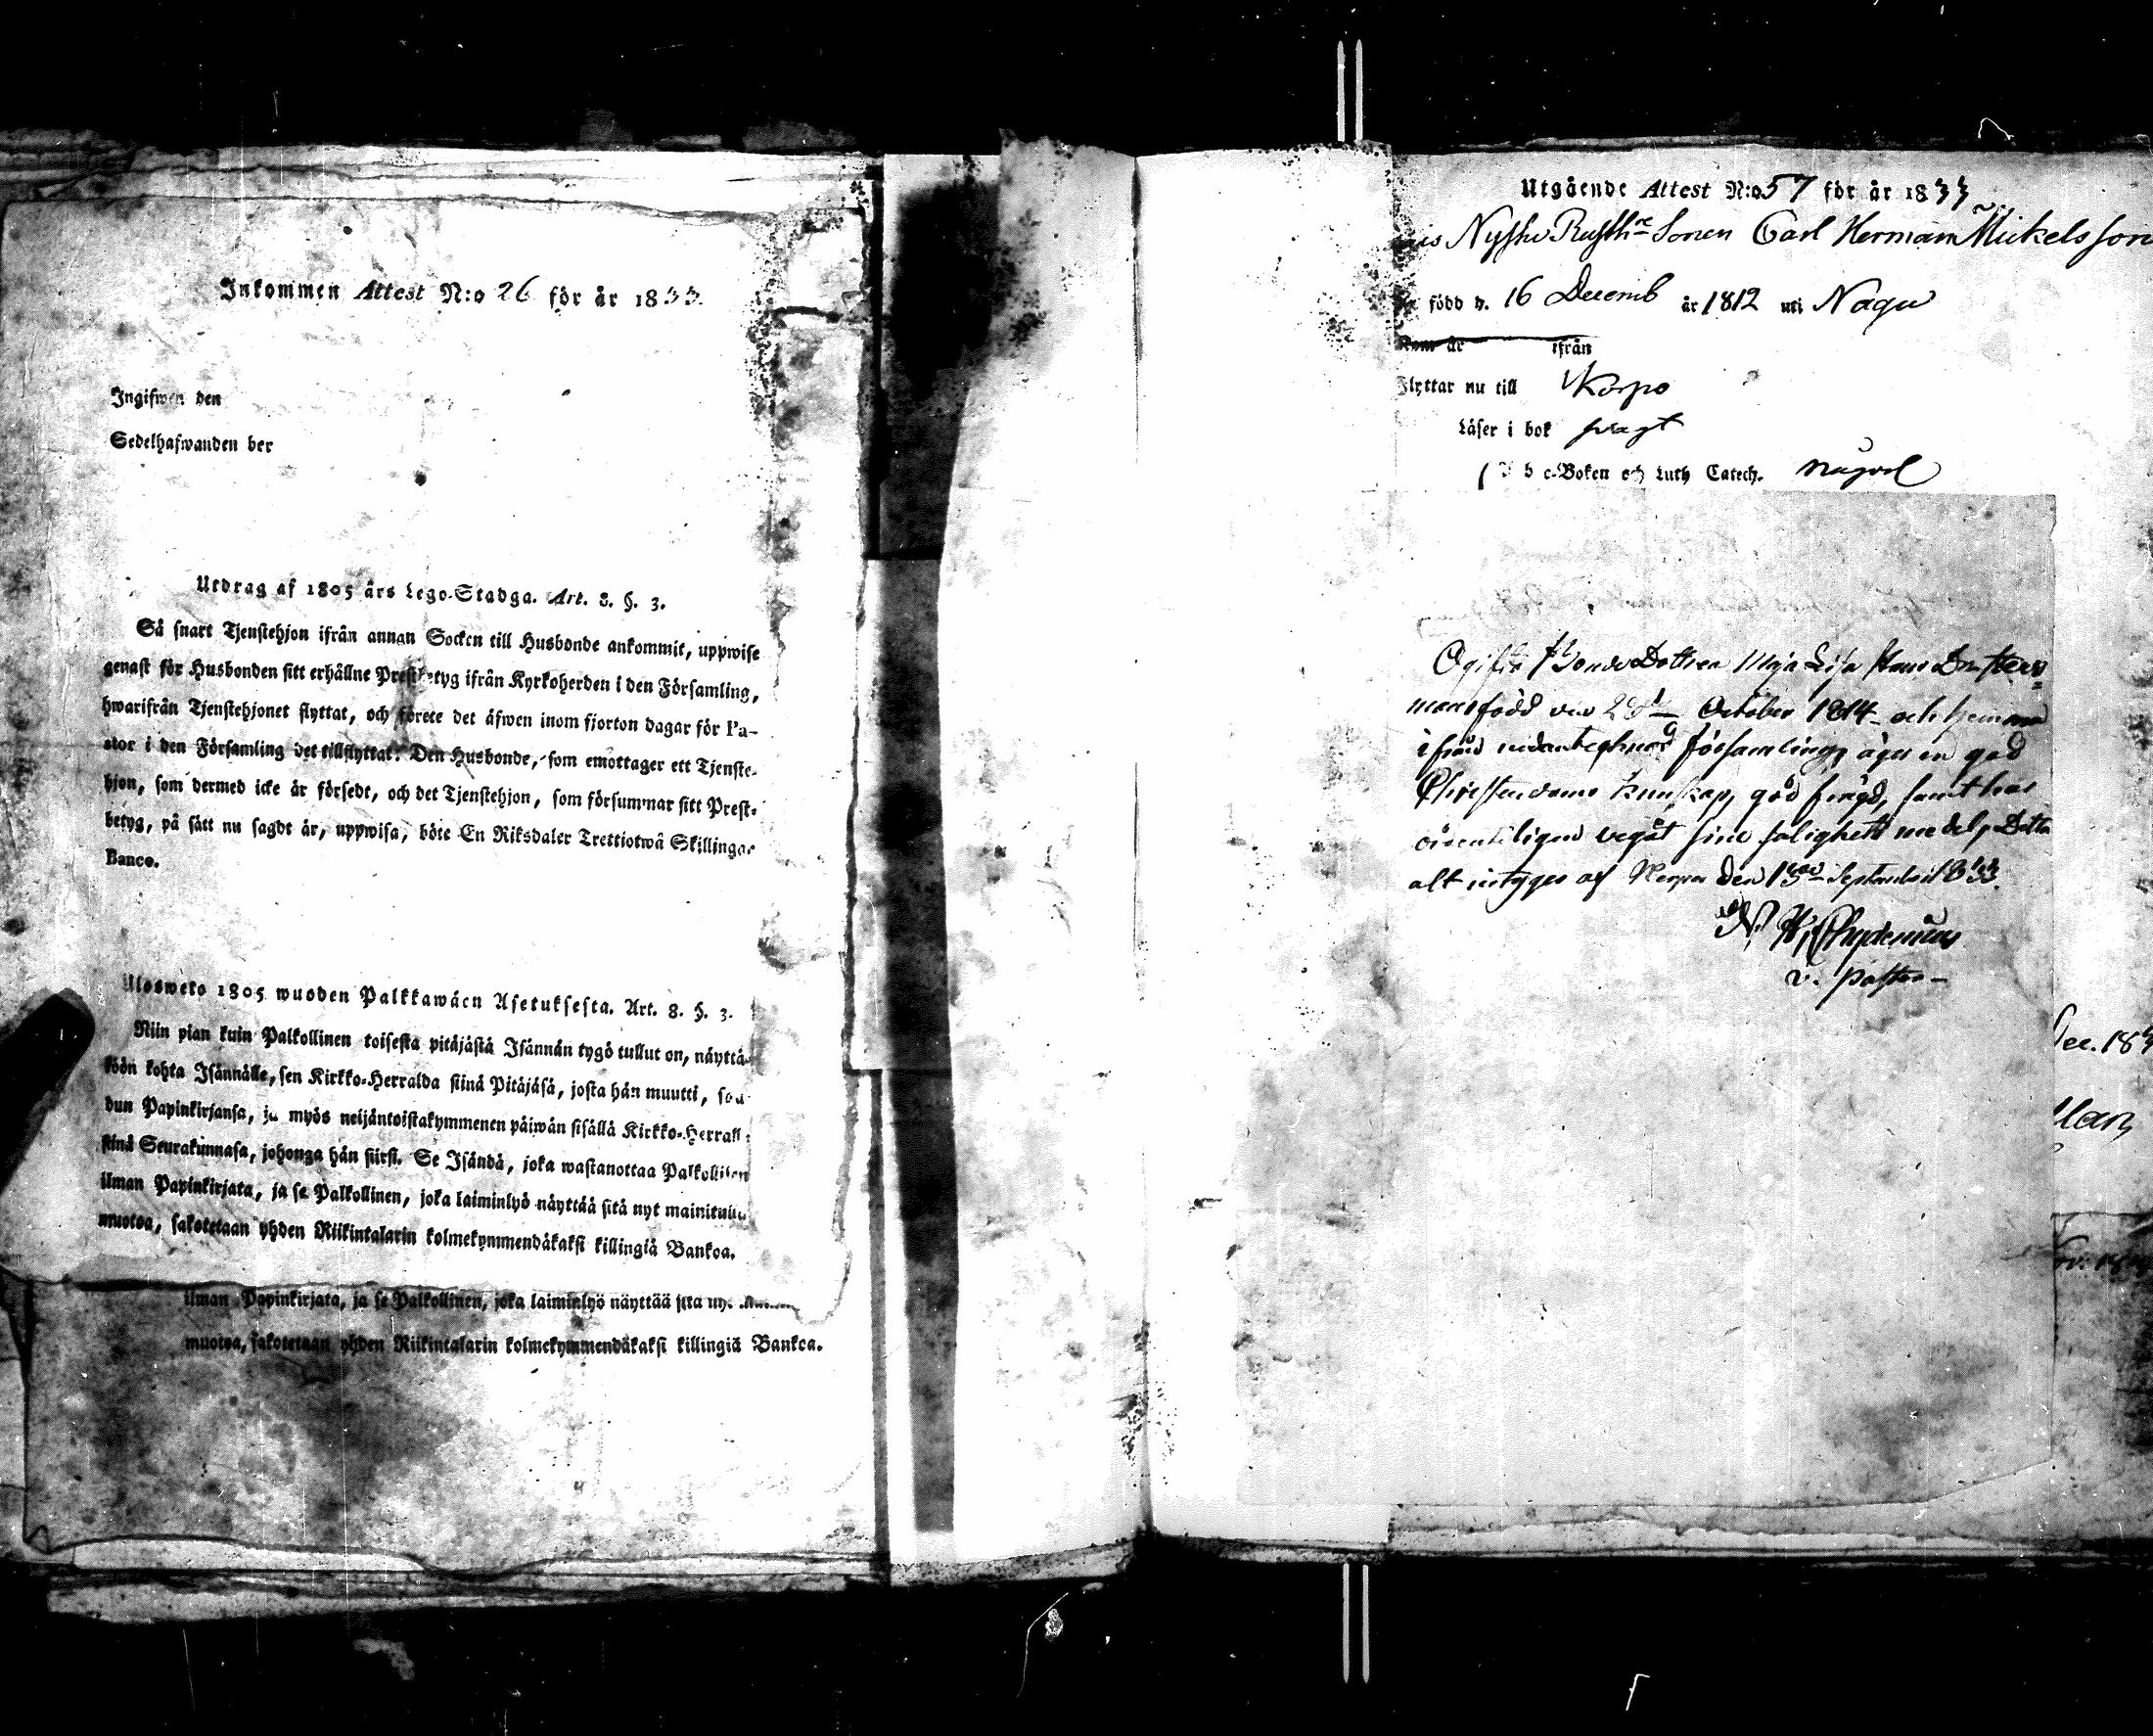 Inkommen Attest N:o 26 för år 1833.
Ingifwen den
Sedelhafwanden ber
Utdrag af 1805 års Lego-Stadga. Art. 8. §. 3.
Så snart Tjenstehjon ifrån annan Socken till Husbonde ankommit, uppwise
genast för Husbonden sitt erhållne Prestbetyg ifrån Kyrkoherden i den Församling,
hwarifrån Tjenstehjonet flyttat, och förete det äfwen inom fjorton dagar för Pa-
stor i den Församling det tillflyttat. Den Husbonde, som emottager ett Tjenste-
hjon, som dermed icke är försedt, och det Tjenstehjon, som försummar sitt Prest-
betyg, på sätt nu sagdt är, uppwisa, böte En Riksdaler Trettiotwå Skillingar
Banco.
Ulosweto 1805 wuoden Palkkawäen Asetuksesta. Art. 8. §. 3.
Niin pian kuin Palkollinen toisesta pitäjästä Isännän tygö tullut on, näyttä-
köön kohta Isännälle, sen Kirkko-Herralda siinä Pitäjäsä, josta hän muutti, saa-
dun Papinkirjansa, ja myös neljäntoistakymmenen päiwän sisällä Kirkko-Herrall
siinä Seurakunnasa, johonga hän siirsi. Se Isändä, joka wastanottaa Palkollisen
ilman Papinkirjata, ja se Palkollinen, joka laiminlyö näyttää sitä nyt mainitulla
muotoa, sakotetaan yhden Riikintalarin kolmekymmendäkaksi killingiä Bankoa.
ilman Papinkirjata, ja se Palkollinen, joka laiminlyö näyttää sitä nyt
muotoa, sakotetaan yhden Riikintalarin kolmekymmendäkaksi killingiä Bankoa.
Utgående Attest N:o 57 för år 1833
Rusth Sonen Carl Herman Mickelsson
född d. 16 Decemb år 1812 uti Nagu
Kom år ifrån
Flyttar nu till Korpo
Läser i bok swagt
A b c-Boken och Luth Catech. något
Ogifta Bonde Dottren Maja Lisa Hans Dr
född den October 1814 och hemma
ifrån nedantecknad församling, äger en god
Christendoms kunskap, god frägd, samt har
ordentligen begåt sine salighets medel, Detta
alt intygas af Korpo den 13 September 1833.
Chydenius
v. pastor
Dec. 183